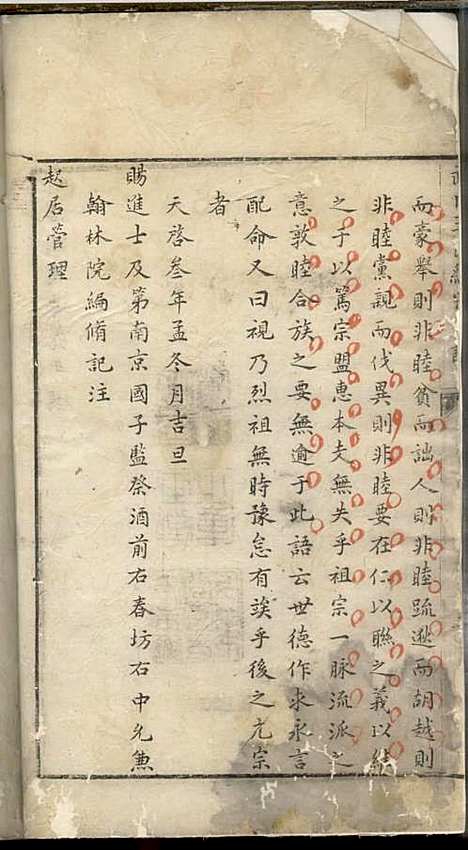 而豪舉則非睦貧而諂人則非睦疏逖而胡越則
非睦黨親而伐異則非睦要在仁以聯之義以結
之于以篤宗盟惠本支無失乎祖宗一脉流派之
意敦睦合族之要無逾于此語云世德作求永言
配命又曰視乃烈祖無時豫怠有俟乎後之亢宗
者
天啓叁年孟冬月吉旦
賜進士及第南京國子監祭酒前右春坊右中允兼
翰林院編脩記注
起居管理